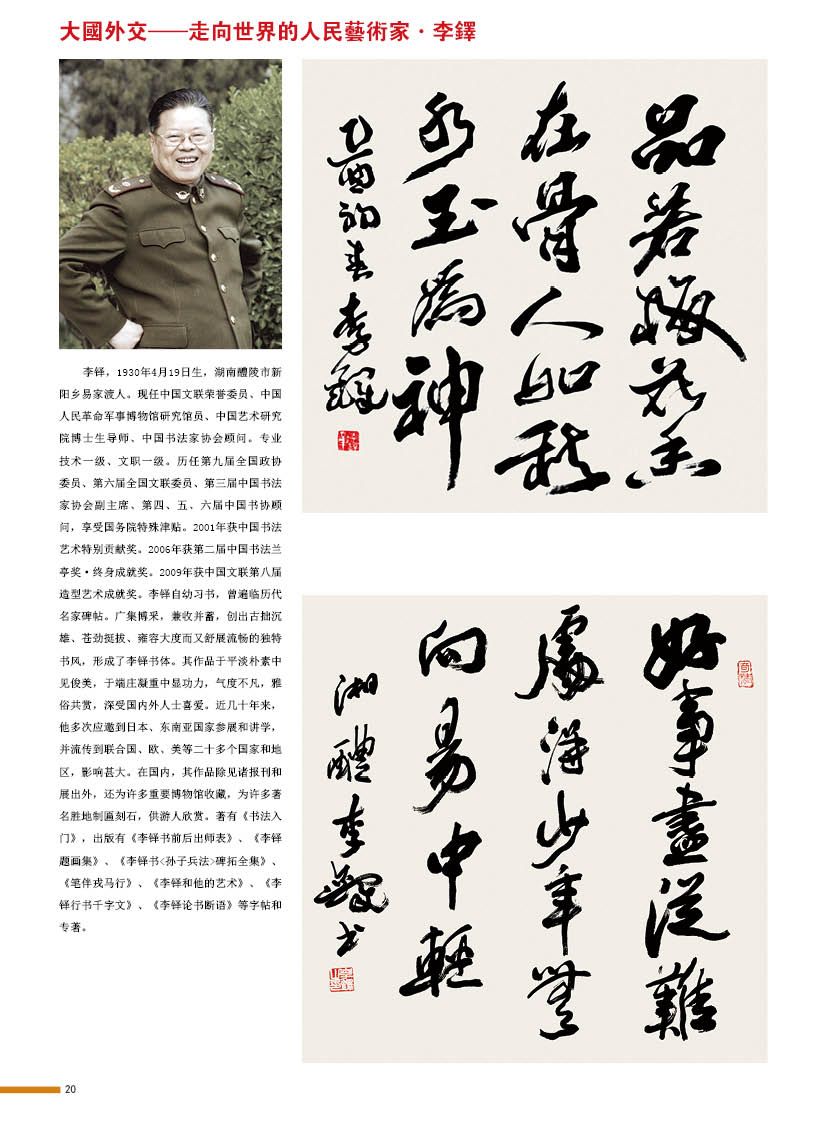 大國外交——走向世界的人民藝術家·李鐸
李铎，1930年4月19日生，湖南醴陵市新
阳乡易家渡人。现任中国文联荣誉委员、中国
人民革命军事博物馆研究馆员、中国艺术研究
院博士生导师、中国书法家协会顾问。专业
技术一级、文职一级。历任第九届全国政协
委员、第六届全国文联委员、第三届中国书法
家协会副主席、第四、五、六届中国书协顾
问，享受国务院特殊津贴。2001年获中国书法
艺术特别贡献奖。2006年获第二届中国书法兰
亭奖·终身成就奖。2009年获中国文联第八届
造型艺术成就奖。李铎自幼习书，曾遍临历代
名家碑帖。广集博采，兼收并蓄，创出古拙沉
雄、苍劲挺拔、雍容大度而又舒展流畅的独特
书风，形成了李铎书体。其作品于平淡朴素中
见俊美，于端庄凝重中显功力，气度不凡，雅
俗共赏，深受国内外人士喜爱。近几十年来，
他多次应邀到日本、东南亚国家参展和讲学，
并流传到联合国、欧、美等二十多个国家和地
区，影响甚大。在国内，其作品除见诸报刊和
展出外，还为许多重要博物馆收藏，为许多著
名胜地制匾刻石，供游人欣赏。著有《书法入
门》，出版有《李铎书前后出师表》、《李铎
题画集》、《李铎书<孙子兵法>碑拓全集》、
《笔伴戎马行》、《李铎和他的艺术》、《李
铎行书千字文》、《李铎论书断语》等字帖和
专著。
品若梅花香
在骨人如秋
水玉為神
乙酉初春李鐸
好事盡從難
處得少年無
向易中輕
湘醴李鐸书
20